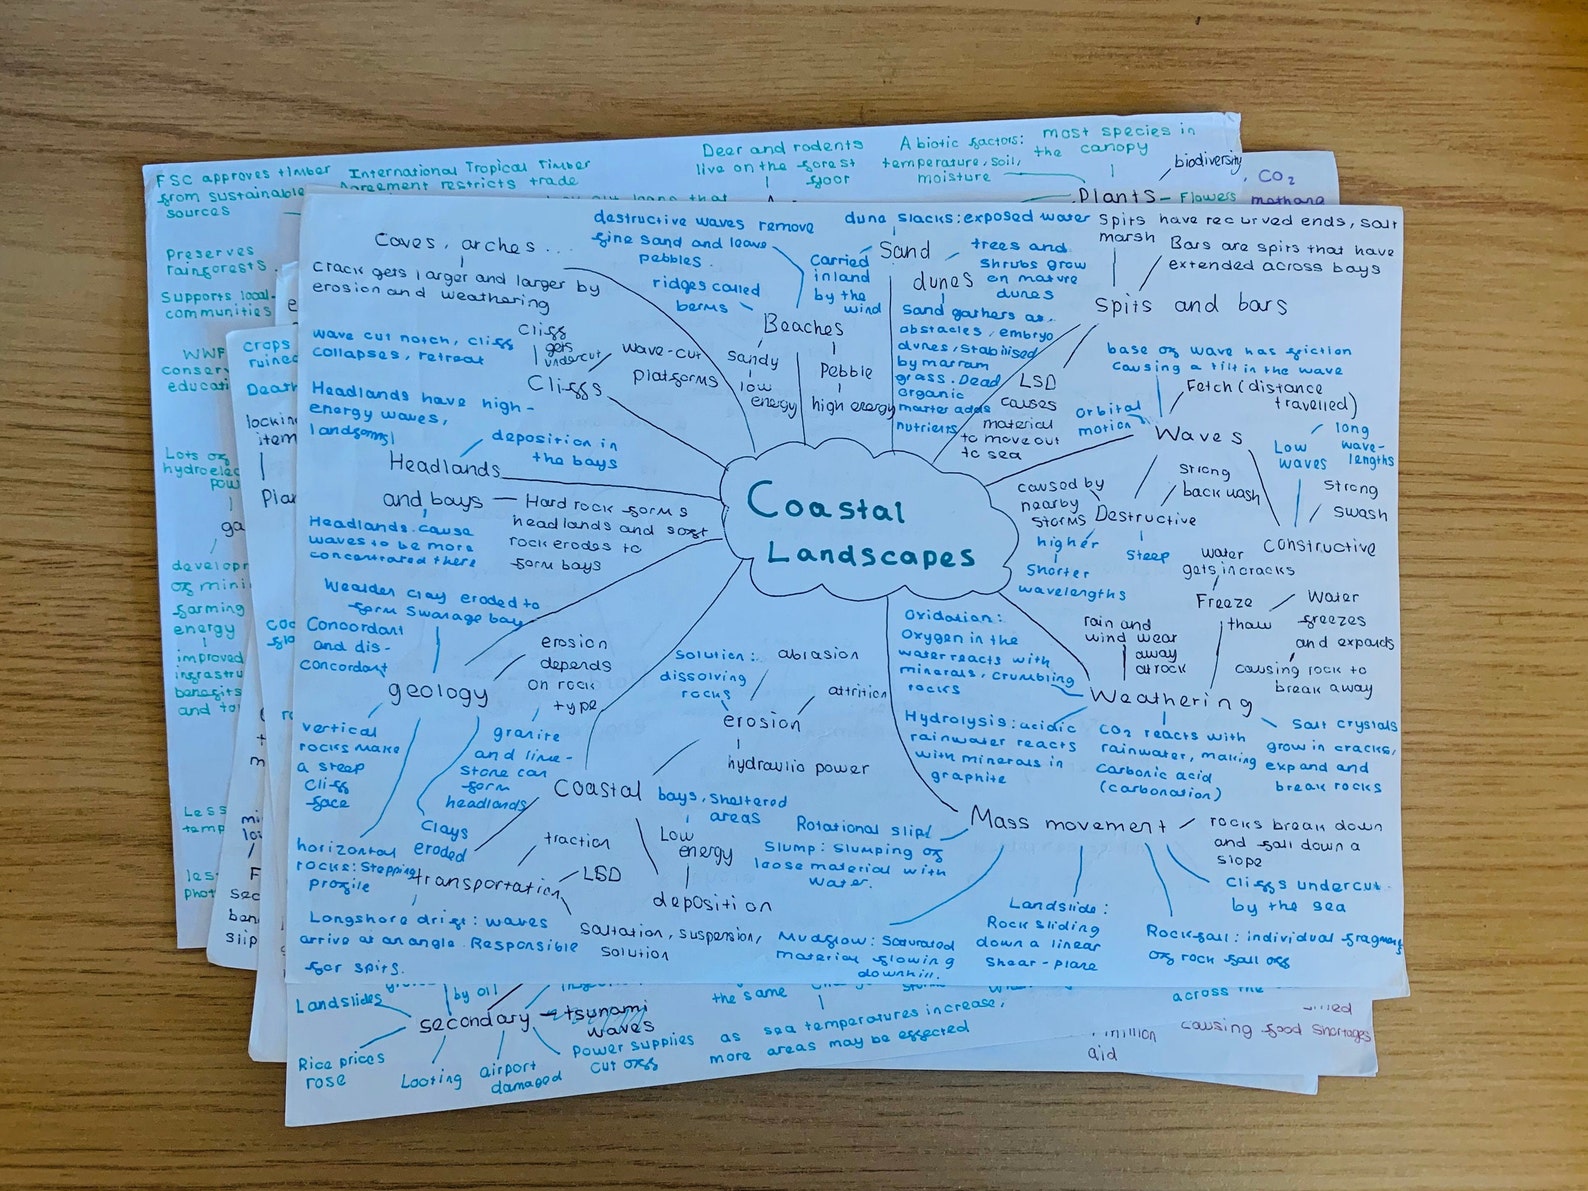 FSC approves timber
from sustainable
sources
International Tropical Timber
Agreement restricts trade
Deer and rodents
live on the forest
floor
Abiotic factors:
temperature, soil,
moisture
most species in
the canopy
biodiversity
Plants - Flowers
CO2
methane
Preserves
rainforests.
Supports local
communities
WWF
Lots of
crops
ruined
Coastal
Landscapes
Caves, arches...
crack gets larger and larger by
erosion and weathering
wave cut notch, cliff
collapses, retreat
Cliff
gets
undercut
wave-cut
platforms
Cliffs
destructive waves remove
fine sand and leave
pebbles.
ridges called
berms
Beaches
sandy
low
energy
Pebble
high energy
dune slacks: exposed water
Sand
dunes
carried
inland
by the
wind
trees and
shrubs grow
on mature
dunes
Sand gathers as
obstacles, embryo
dunes, stabilised
by marram
grass. Dead
organic
matter adds
nutrients
Spits have recurved ends, salt
marsh
Bars are spits that have
extended across bays
Spits and bars
LSD
causes
material
to move out
to sea
base of wave has friction
causing a tilt in the wave
Fetch (distance
travelled)
orbital
motion
Waves
long
wave-
lengths
Low
waves
strong
swash
constructive
strong
backwash
caused by
nearby
storms
Destructive
higher
steep
shorter
wavelengths
Headlands have high-
energy waves,
landforms!
deposition in
the bays
Headlands
and bays
Hard rock forms
headlands and soft
rock erodes to
form bays
Headlands cause
waves to be more
concentrated there
Wealden clay eroded to
form Swanage bay
Concordant
and dis-
concordant
geology
erosion
depends
on rock
type
vertical
rocks make
a steep
cliff
face
granite
and lime-
stone can
form
headlands
clays
eroded
horizontal
rocks: stepping
profile
Solution:
dissolving
rocks
abrasion
attrition
erosion
hydraulic power
Coastal
bays, sheltered
areas
Low
energy
deposition
traction
LSD
transportation
saltation, suspension,
solution
Longshore drift: waves
arrive at an angle. Responsible
for spits.
water
gets in cracks
Freeze
thaw
Water
freezes
and expands
causing rock to
break away
rain and
wind wear
away
at rock
Oxidation:
Oxygen in the
water reacts with
minerals, crumbling
rocks
Weathering
Hydrolysis: acidic
rainwater reacts
with minerals in
graphite
CO2 reacts with
rainwater, making
carbonic acid
(carbonation)
Salt crystals
grow in cracks,
expand and
break rocks
Mass movement
rocks break down
and fall down a
slope
Rotational slip/
Slump: slumping of
loose material with
water.
Cliffs undercut
by the sea
Landslide:
Rock sliding
down a linear
shear-plane
Mudflow: Saturated
material flowing
downhill.
Rockfall: individual fragments
of rock fall off
Landslides
by oil
secondary - tsunami
waves
Rice prices
rose
Looting
airport
damaged
Power supplies
cut off
the same
as sea temperatures increase,
more areas may be effected
across the
million
aid
causing food shortages